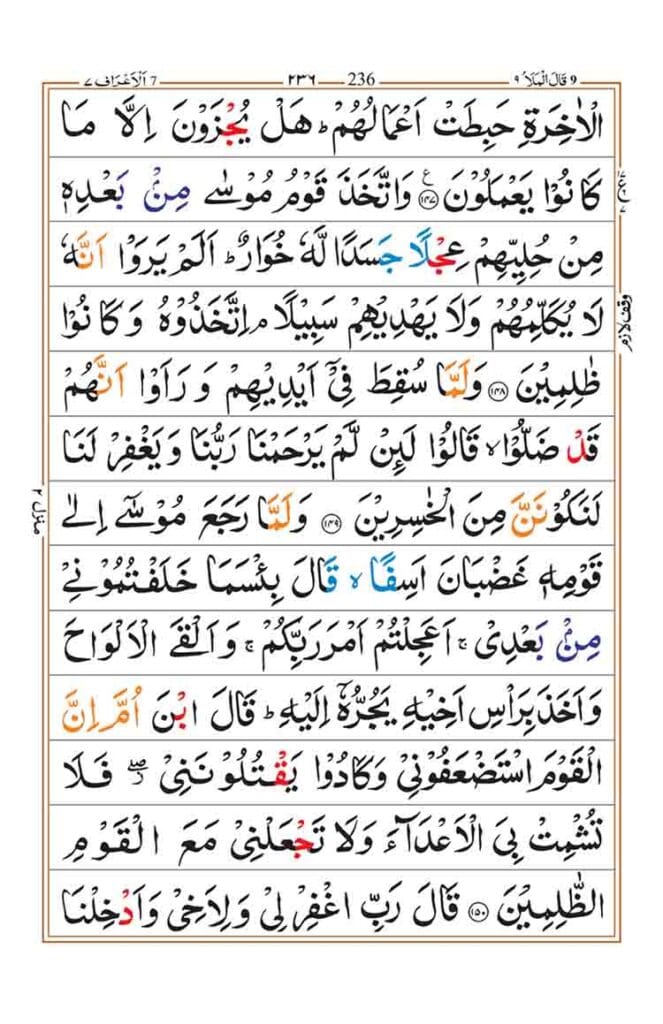 ٩ قَالَ الْمَلَاُ 9 236 ٢٣٦ 7 اَلْاَعْرَاف ٧
الْاٰخِرَةِ حَبِطَتْ اَعْمَالُهُمْ ؕ هَلْ يُجْزَوْنَ اِلَّا مَا
كَانُوْا يَعْمَلُوْنَ ﴿۱۴۷﴾ ع وَاتَّخَذَ قَوْمُ مُوْسٰى مِنْۢ بَعْدِهٖ
مِنْ حُلِيِّهِمْ عِجْلًا جَسَدًا لَّهٗ خُوَارٌ ؕ اَلَمْ يَرَوْا اَنَّهٗ
لَا يُكَلِّمُهُمْ وَلَا يَهْدِيْهِمْ سَبِيْلًا ۘ اِتَّخَذُوْهُ وَكَانُوْا
وقف لازم
ظٰلِمِيْنَ ﴿۱۴۸﴾ وَلَمَّا سُقِطَ فِىْۤ اَيْدِيْهِمْ وَرَاَوْا اَنَّهُمْ
قَدْ ضَلُّوْا ۙ قَالُوْا لَىِٕنْ لَّمْ يَرْحَمْنَا رَبُّنَا وَيَغْفِرْ لَنَا
لَنَكُوْنَنَّ مِنَ الْخٰسِرِيْنَ ﴿۱۴۹﴾ وَلَمَّا رَجَعَ مُوْسٰٓى اِلٰى
منزل ٢
قَوْمِهٖ غَضْبَانَ اَسِفًا ۙ قَالَ بِئْسَمَا خَلَفْتُمُوْنِىْ
مِنْۢ بَعْدِىْ ۚ اَعَجِلْتُمْ اَمْرَ رَبِّكُمْ ۚ وَاَلْقَى الْاَلْوَاحَ
وَاَخَذَ بِرَاْسِ اَخِيْهِ يَجُرُّهٗۤ اِلَيْهِ ؕ قَالَ ابْنَ اُمَّ اِنَّ
الْقَوْمَ اسْتَضْعَفُوْنِىْ وَكَادُوْا يَقْتُلُوْنَنِىْ ۖ ز فَلَا
تُشْمِتْ بِىَ الْاَعْدَآءَ وَلَا تَجْعَلْنِىْ مَعَ الْقَوْمِ
الظّٰلِمِيْنَ ﴿۱۵۰﴾ قَالَ رَبِّ اغْفِرْ لِىْ وَلِاَخِىْ وَاَدْخِلْنَا